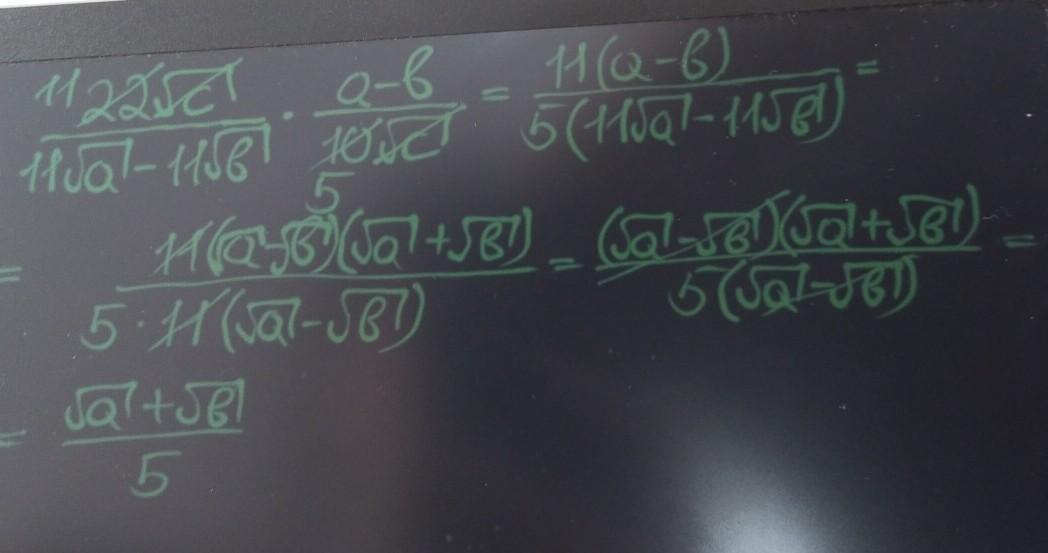 11 22√c / (11√a - 11√b) · (a-b) / (10√c) 5 = 11(a-b) / 5(11√a - 11√b) =
= 11(√a-√b)(√a+√b) / 5·11(√a-√b) = (√a-√b)(√a+√b) / 5(√a-√b) =
= (√a+√b) / 5